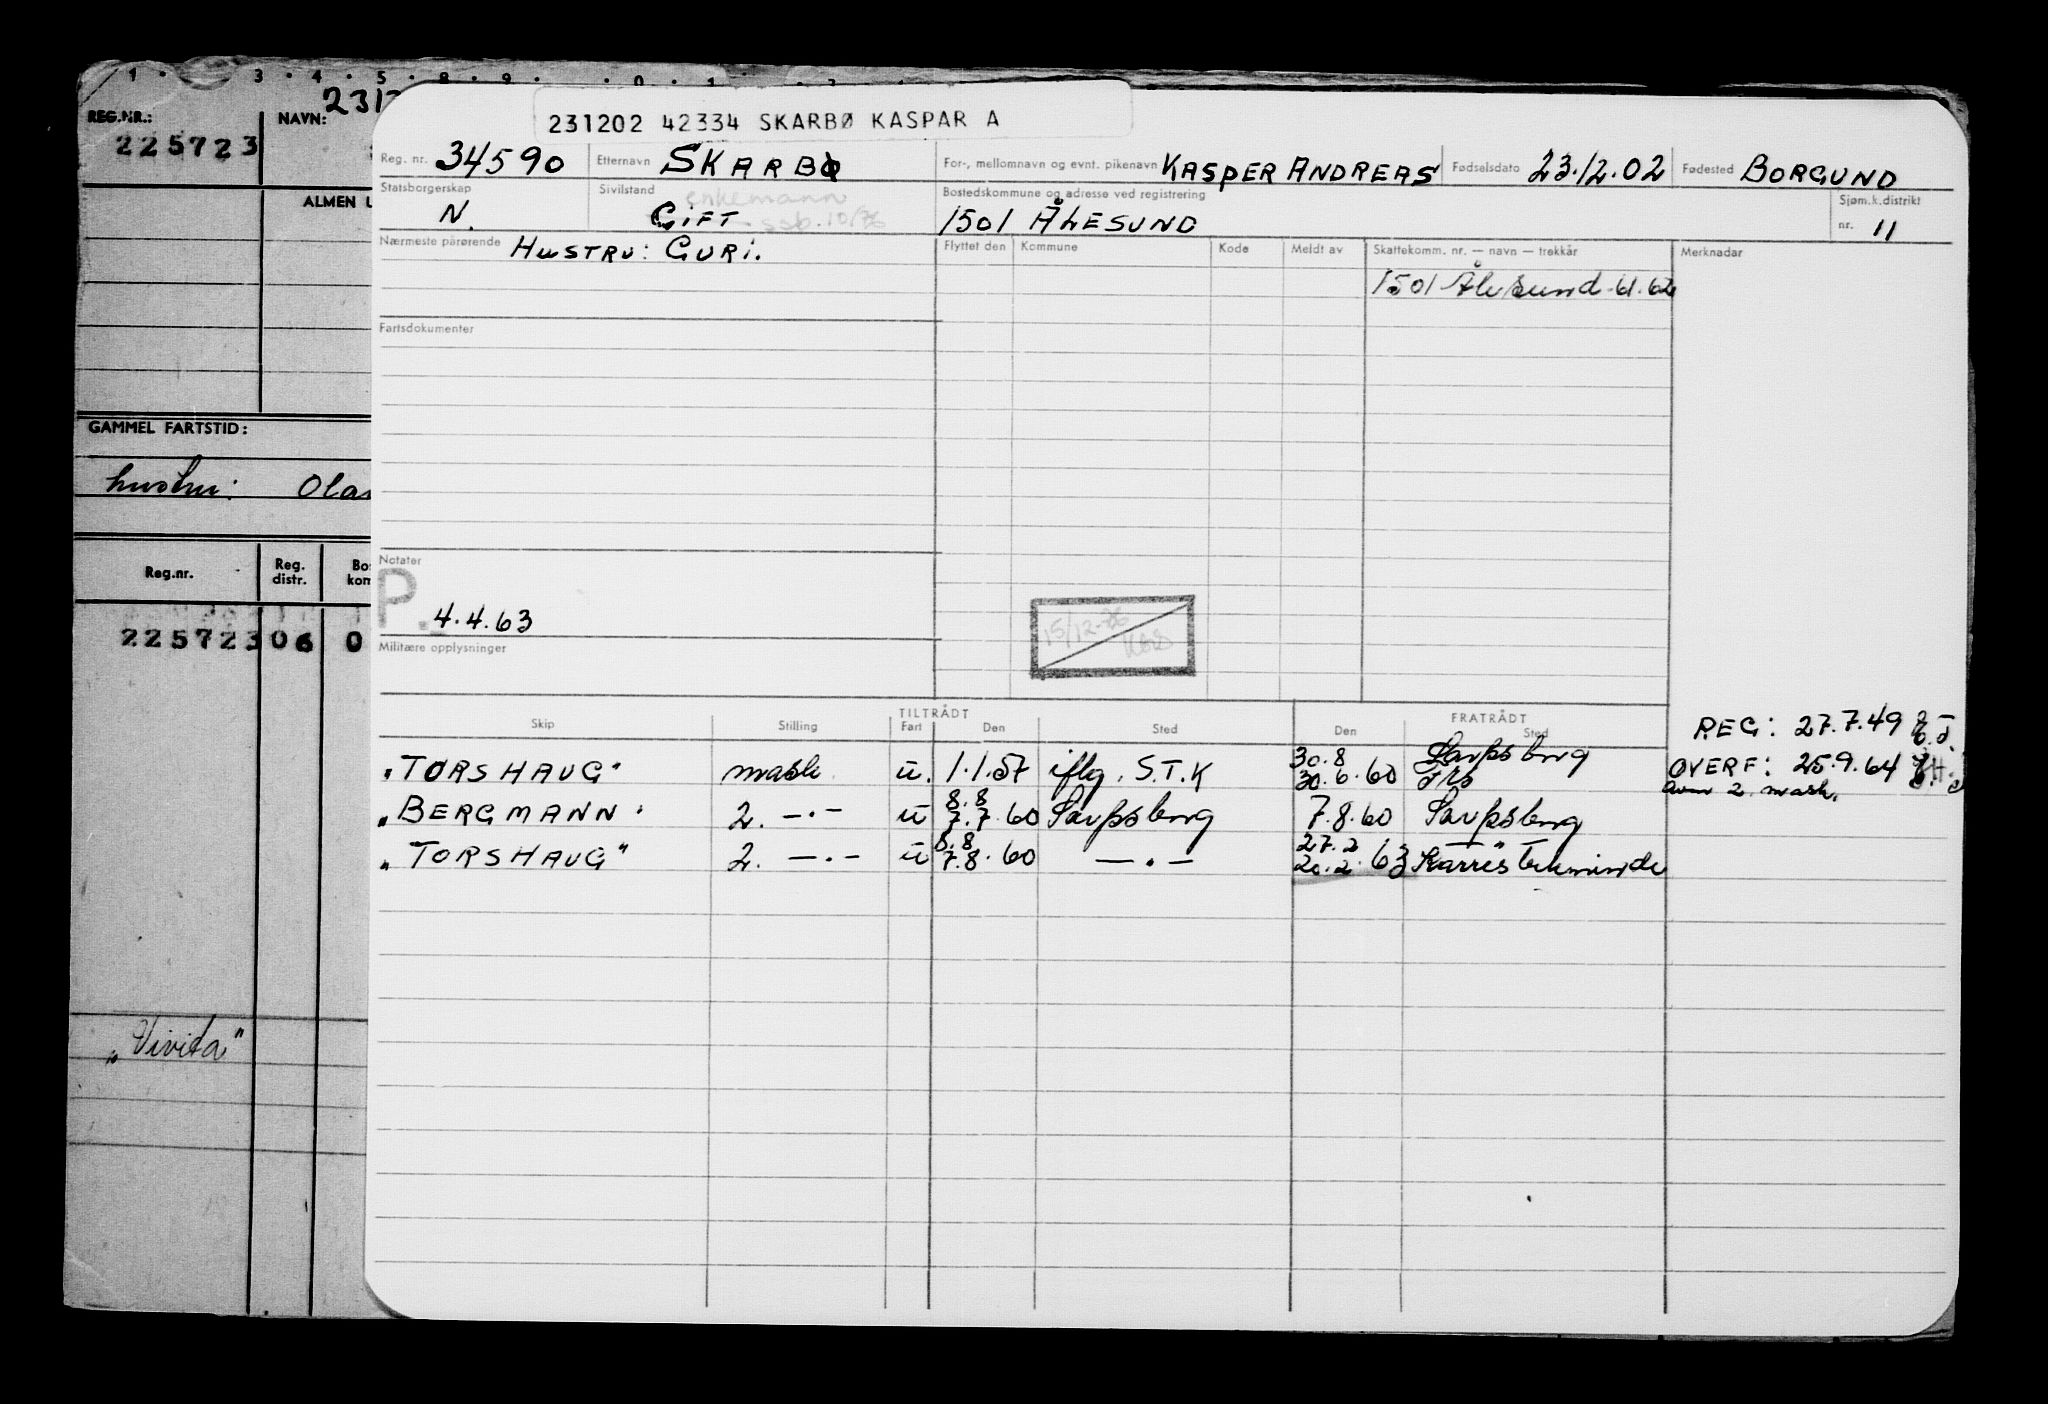 REG.NR.: NAVN:
225723
ALMEN
GAMMEL FARTSTID:
hustru:
Reg.nr. Reg. distr.
225723 06 0
„Vivita"
231202 42334 SKARBØ KASPAR A
Reg. nr. 34590 Etternavn SKARBØ For-, mellomnavn og evnt. pikenavn KASPER ANDREAS Fødselsdato 23.12.02 Fødested BORGUND
Statsborgerskap N. Sivilstand GIFT enkemann ssb. 10/76 Bostedskommune og adresse ved registrering 1501 ÅLESUND Sjøm.k.distrikt nr. 11
Nærmeste pårørende HUSTRU: GURI. Flyttet den Kommune Kode Meldt av Skattekomm. nr. — navn — trekkår Merknader
1501 Ålesund-61.62
Fartsdokumenter
Notater
P. 4.4.63
15/12-76
Militære opplysninger
TILTRÅDT FRATRÅDT
Skip Stilling Fart Den Sted Den Sted
REG: 27.7.49
30.8 Sarpsborg
„TORSHAUG" mask. u. 1.1.57 iflg. S.T.K 30.6.60
OVERF: 25.9.64
2 mask.
8.8
„BERGMANN" 2. —·— u 7.7.60 Sarpsborg 7.8.60 Sarpsborg
8.8 27.2
„TORSHAUG" 2. —·— u 7.8.60 —·— 20.2.63